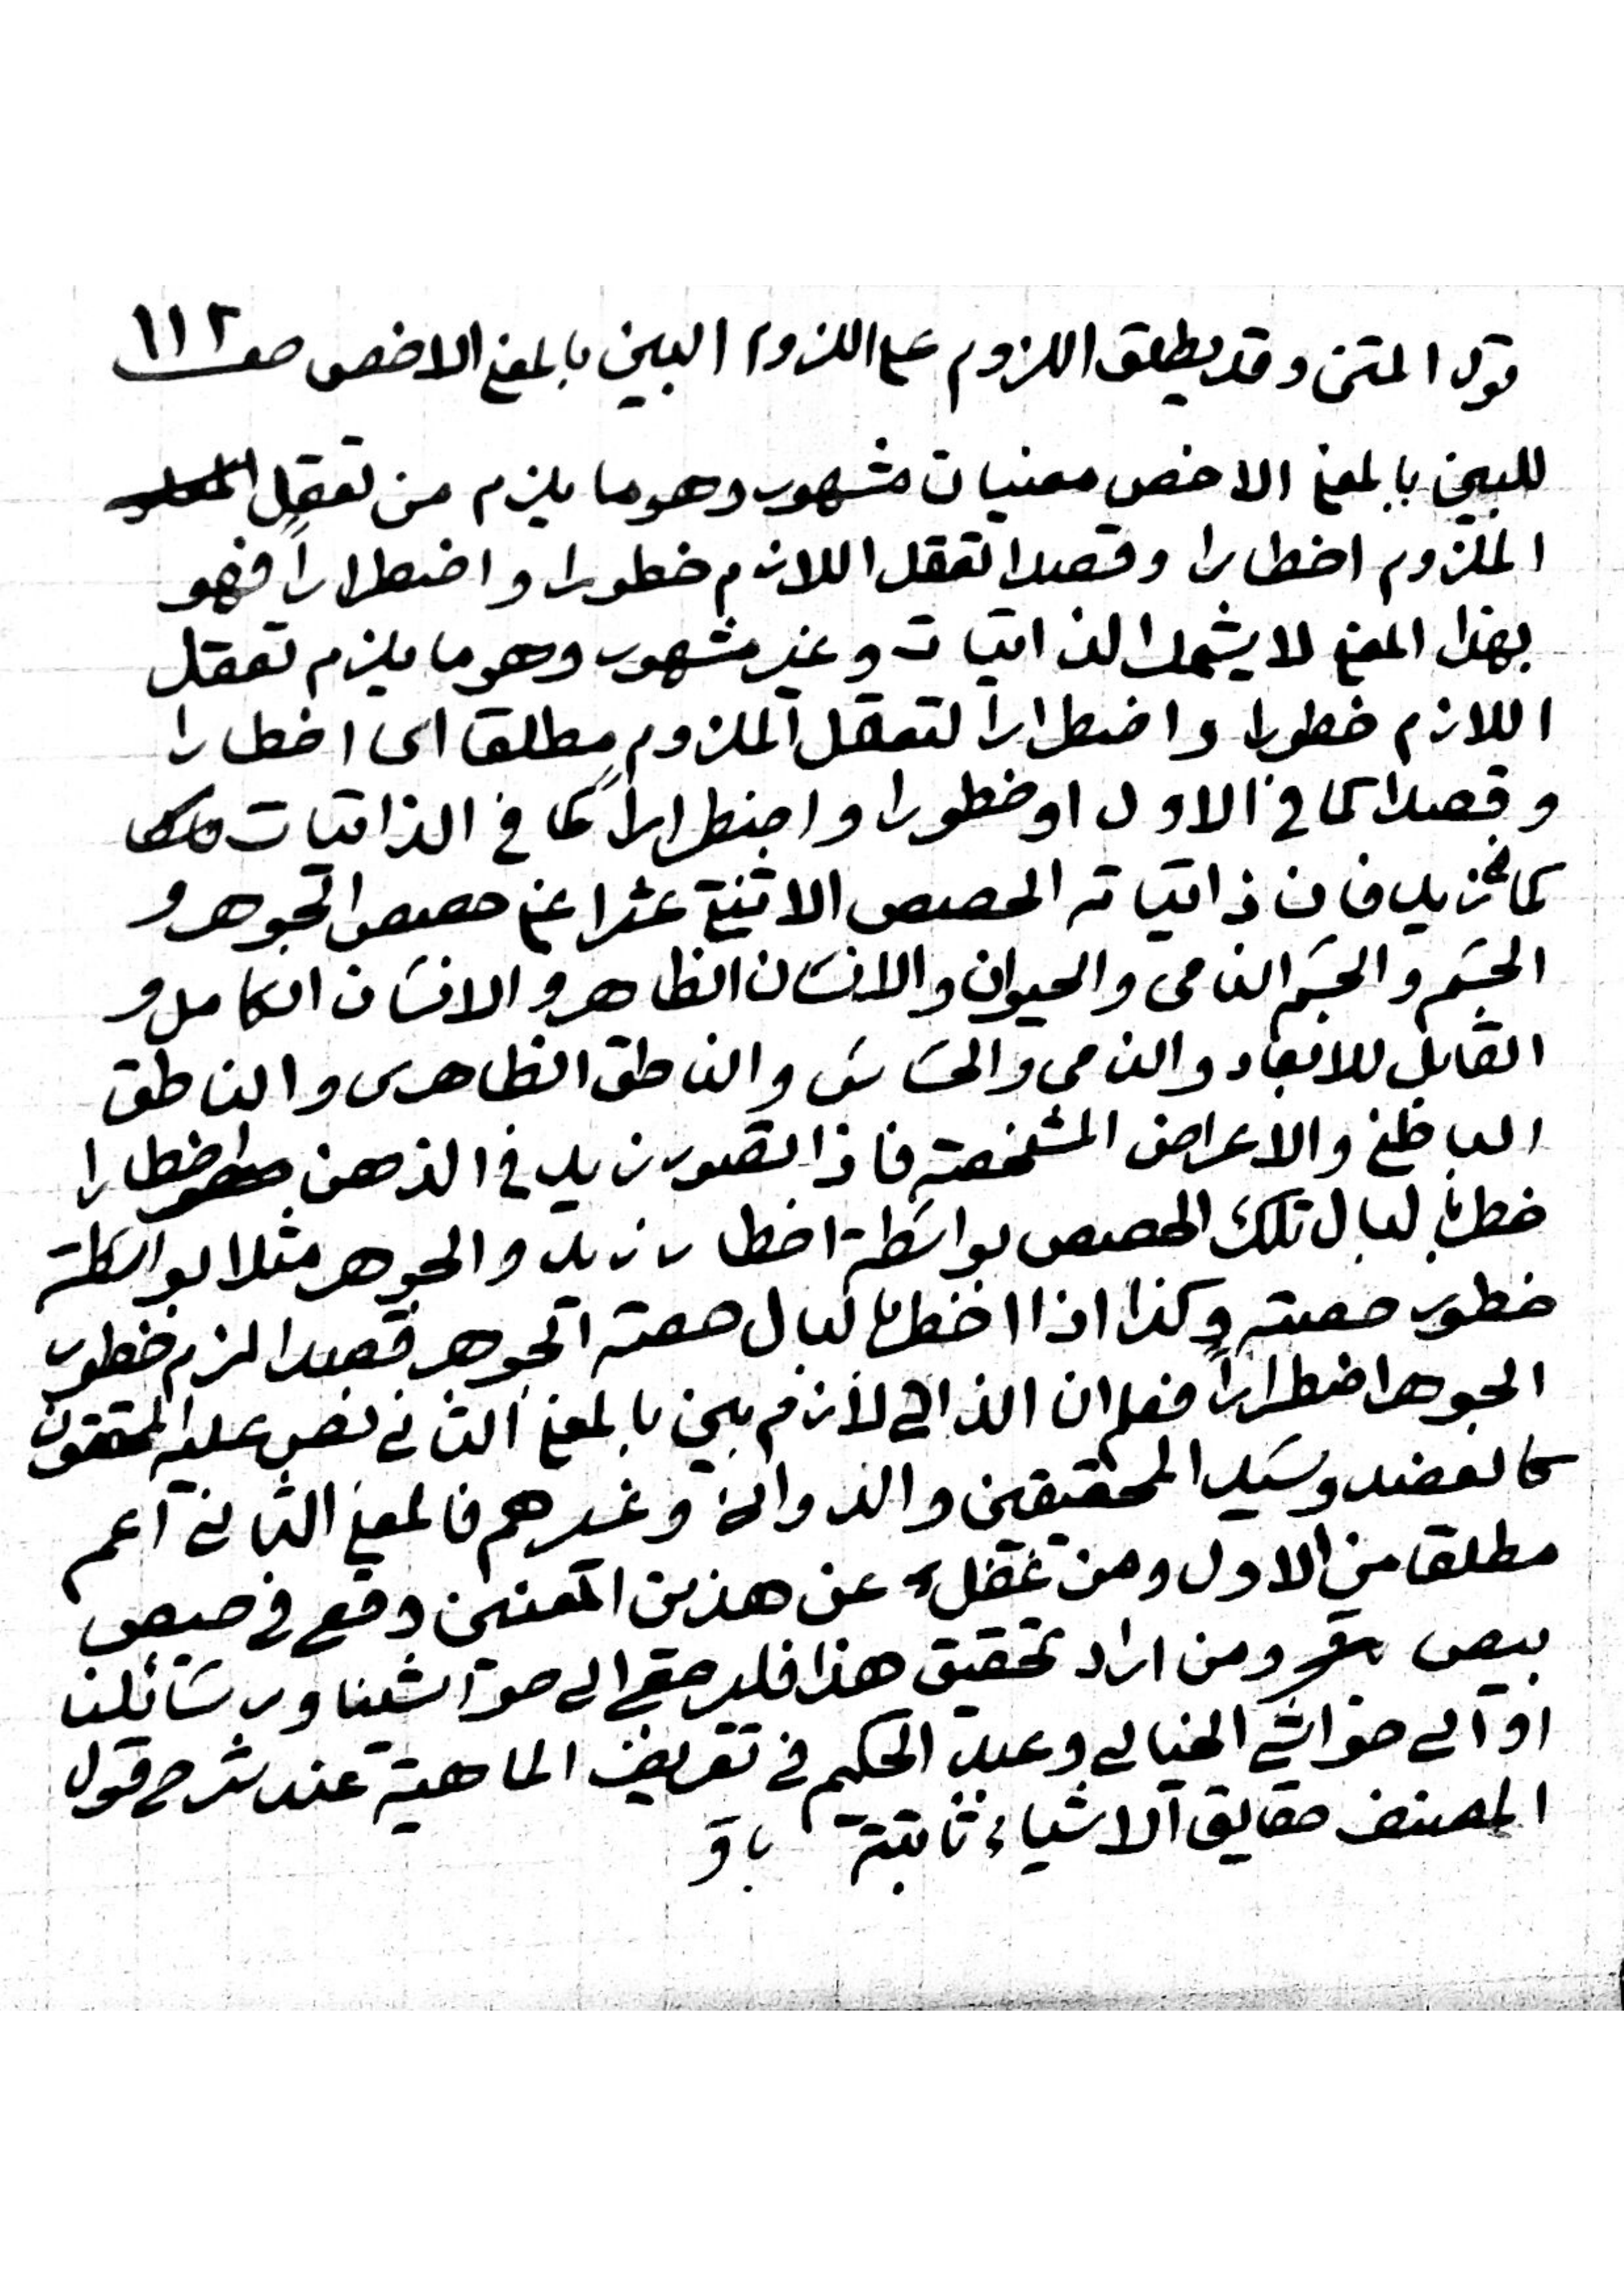 قول المتن وقد يطلق اللزوم على اللزوم البين بالمعنى الاخص صـ ١١٢
للبين بالمعنى الاخص معنيان مشهور وهو ما يلزم من تعقل
الملزوم اخطارا وقصدا تعقل اللازم خطورا واضطراراً فهو
بهذا المعنى لا يشمل الذاتيات وغير مشهور وهو ما يلزم تعقل
اللازم خطورا واضطرارا لتعقل الملزوم مطلقا اى اخطارا
وقصدا كما في الاول او خطورا واضطراراً كما في الذاتيات
كما في زيد فان ذاتياته الحصص الاثنتى عشر اعنى حصص الجوهر و
الجسم والجسم النامى والحيوان والانسان الظاهر والانسان الكامل و
القابل للابعاد والنامى والحساس والناطق الظاهرى والناطق
الباطنى والاعراض المشخصة فاذا تصور زيد في الذهن اخطارا
خطر بالبال تلك الحصص بواسطة اخطار زيد والجوهر مثلا بواسطة
خطور حصته وكذا اذا اخطر بالبال حصته الجوهر قصدا لزم خطور
الجوهر اضطراراً فعلم ان الذاتي لازم بين بالمعنى الثاني نص عليه المحققون
كالعضد وسيد المحققين والدواني وغيرهم فالمعنى الثاني اعم
مطلقا من الاول ومن غفل عن هذين المعنيين وقع في حيص
بيص ومن اراد تحقيق هذا فليرجع الى حواشينا ورسائلنا
او الى حواشي الخيالي وعبد الحكيم في تعريف الماهية عند شرح قول
المصنف حقايق الاشياء ثابتة باق